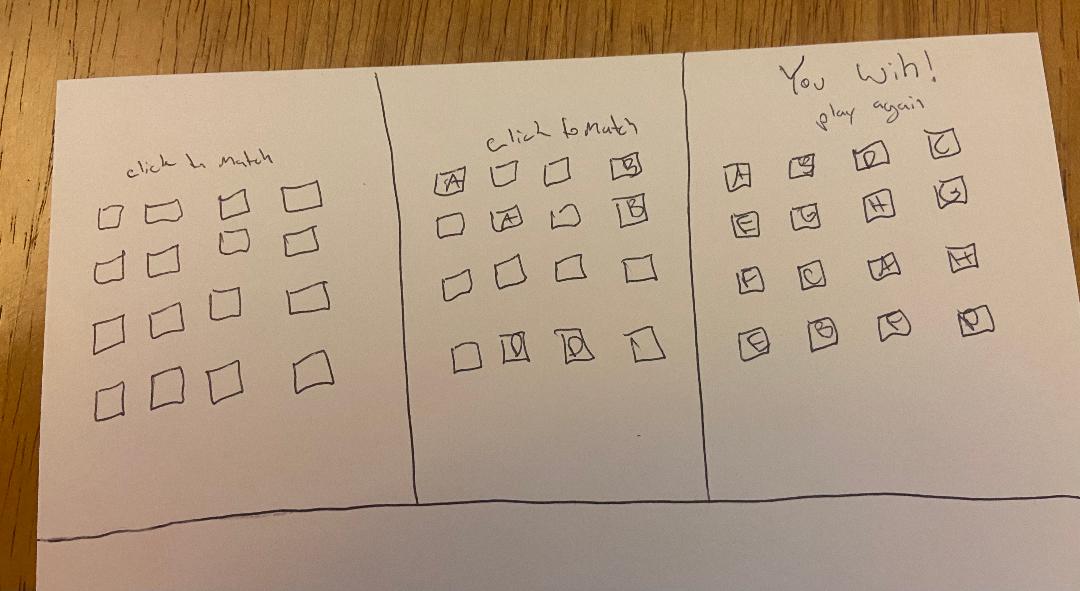 click to match
click to match
A B
A B
D D
You win!
play again
A B D C
E G H G
F C A H
E B F D